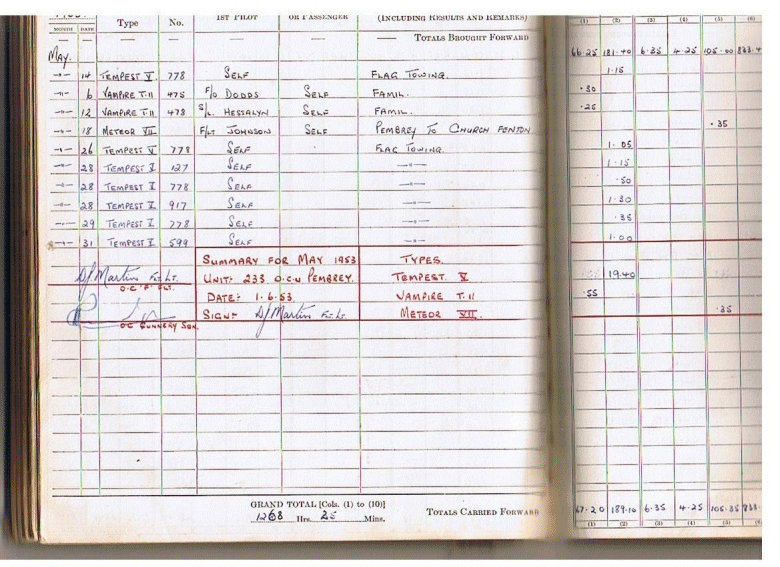 Type No. 1ST PILOT OR PASSENGER (INCLUDING RESULTS AND REMARKS) (1) (2) (3) (4) (5) (6)
MONTH DATE
— — — — — TOTALS BROUGHT FORWARD 66.25 181.40 6.35 4.25 105.00
MAY.
—"— 14 TEMPEST V. 778 SELF FLAG TOWING. 1.15
—"— 6 VAMPIRE T.11 475 F/O DODDS SELF FAMIL. .30
—"— 12 VAMPIRE T.11 478 S/L. HESSALYN SELF FAMIL. .25
—"— 18 METEOR VII. F/LT JOHNSON SELF PEMBREY TO CHURCH FENTON .35
—"— 26 TEMPEST V 778 SELF FLAG TOWING. 1.05
—"— 28 TEMPEST V 127 SELF —"— 1.15
—"— 28 TEMPEST V 778 SELF —"— .50
—"— 28 TEMPEST V 917 SELF —"— 1.30
—"— 29 TEMPEST V 778 SELF —"— .35
—"— 31 TEMPEST V 599 SELF —"— 1.00
SUMMARY FOR MAY 1953 TYPES.
D/Martin F.Lt. UNIT:- 233 O.C.U PEMBREY. TEMPEST V 19.40
O.C 'F' FLT.
DATE:- 1.6.53. VAMPIRE T.11 .55
SIGN:- D/Martin F.Lt. METEOR VII. .35
OC GUNNERY SQN.
GRAND TOTAL [Cols. (1) to (10)] TOTALS CARRIED FORWARD 67.20 189.10 6.35 4.25 105.35
1263 Hrs. 25 Mins. (1) (2) (3) (4) (5) (6)